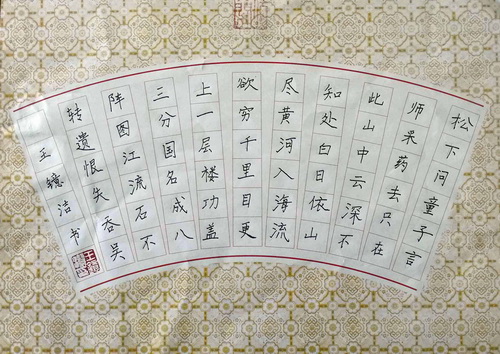 松下问童子言
师采药去只在
此山中云深不
知处白日依山
尽黄河入海流
欲穷千里目更
上一层楼功盖
三分国名成八
阵图江流石不
转遗恨失吞吴
王镱洁书